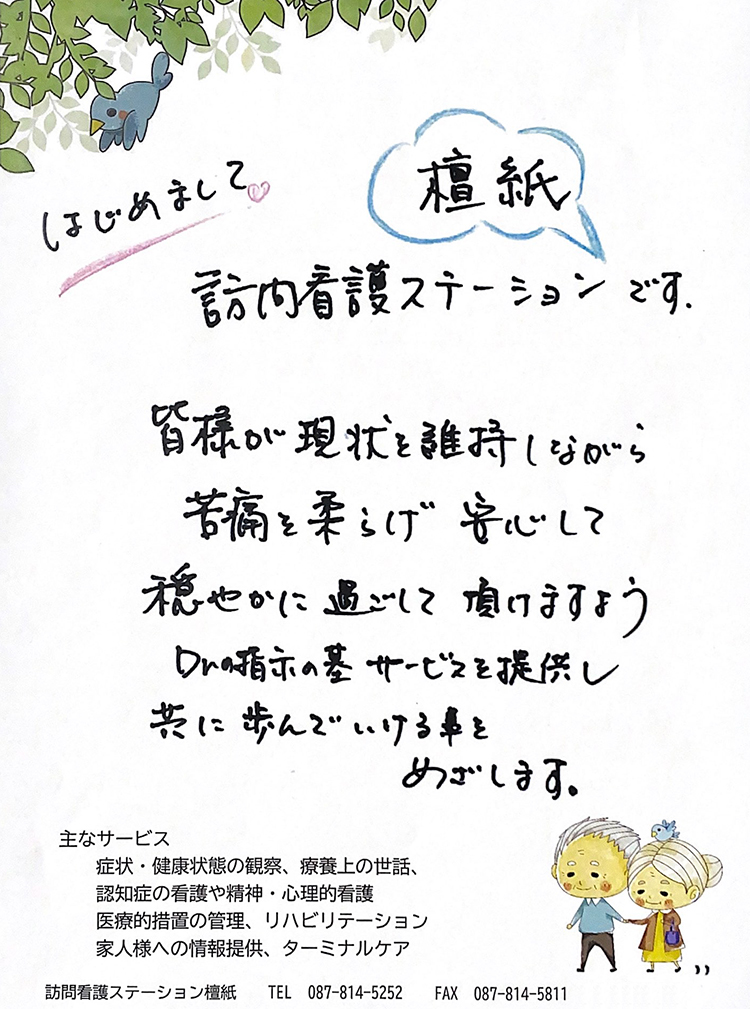 はじめまして
檀紙
訪問看護ステーションです.
皆様が現状を維持しながら
苦痛を柔らげ 安心して
穏やかに過ごして頂けますよう
Drの指示の基サービスを提供し
共に歩んでいける事を
めざします。
主なサービス
症状・健康状態の観察、療養上の世話、
認知症の看護や精神・心理的看護
医療的措置の管理、リハビリテーション
家人様への情報提供、ターミナルケア
訪問看護ステーション檀紙 TEL 087-814-5252 FAX 087-814-5811